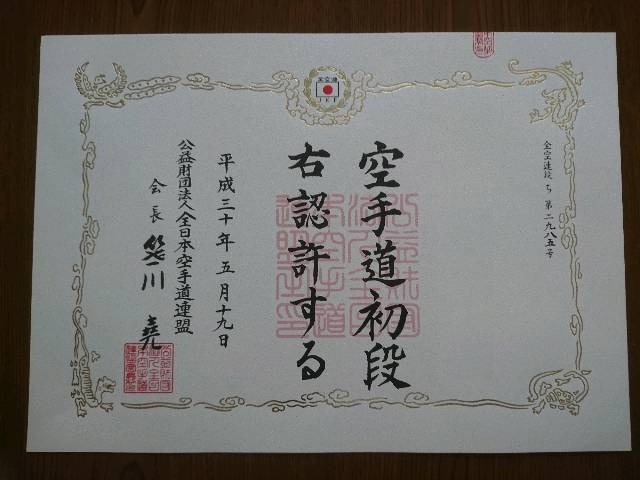 全空連
JKF
全空連段 ち 第二九八五号
空手道初段
右認許する
平成三十年五月十九日
公益財団法人全日本空手道連盟
会長 笹川 堯